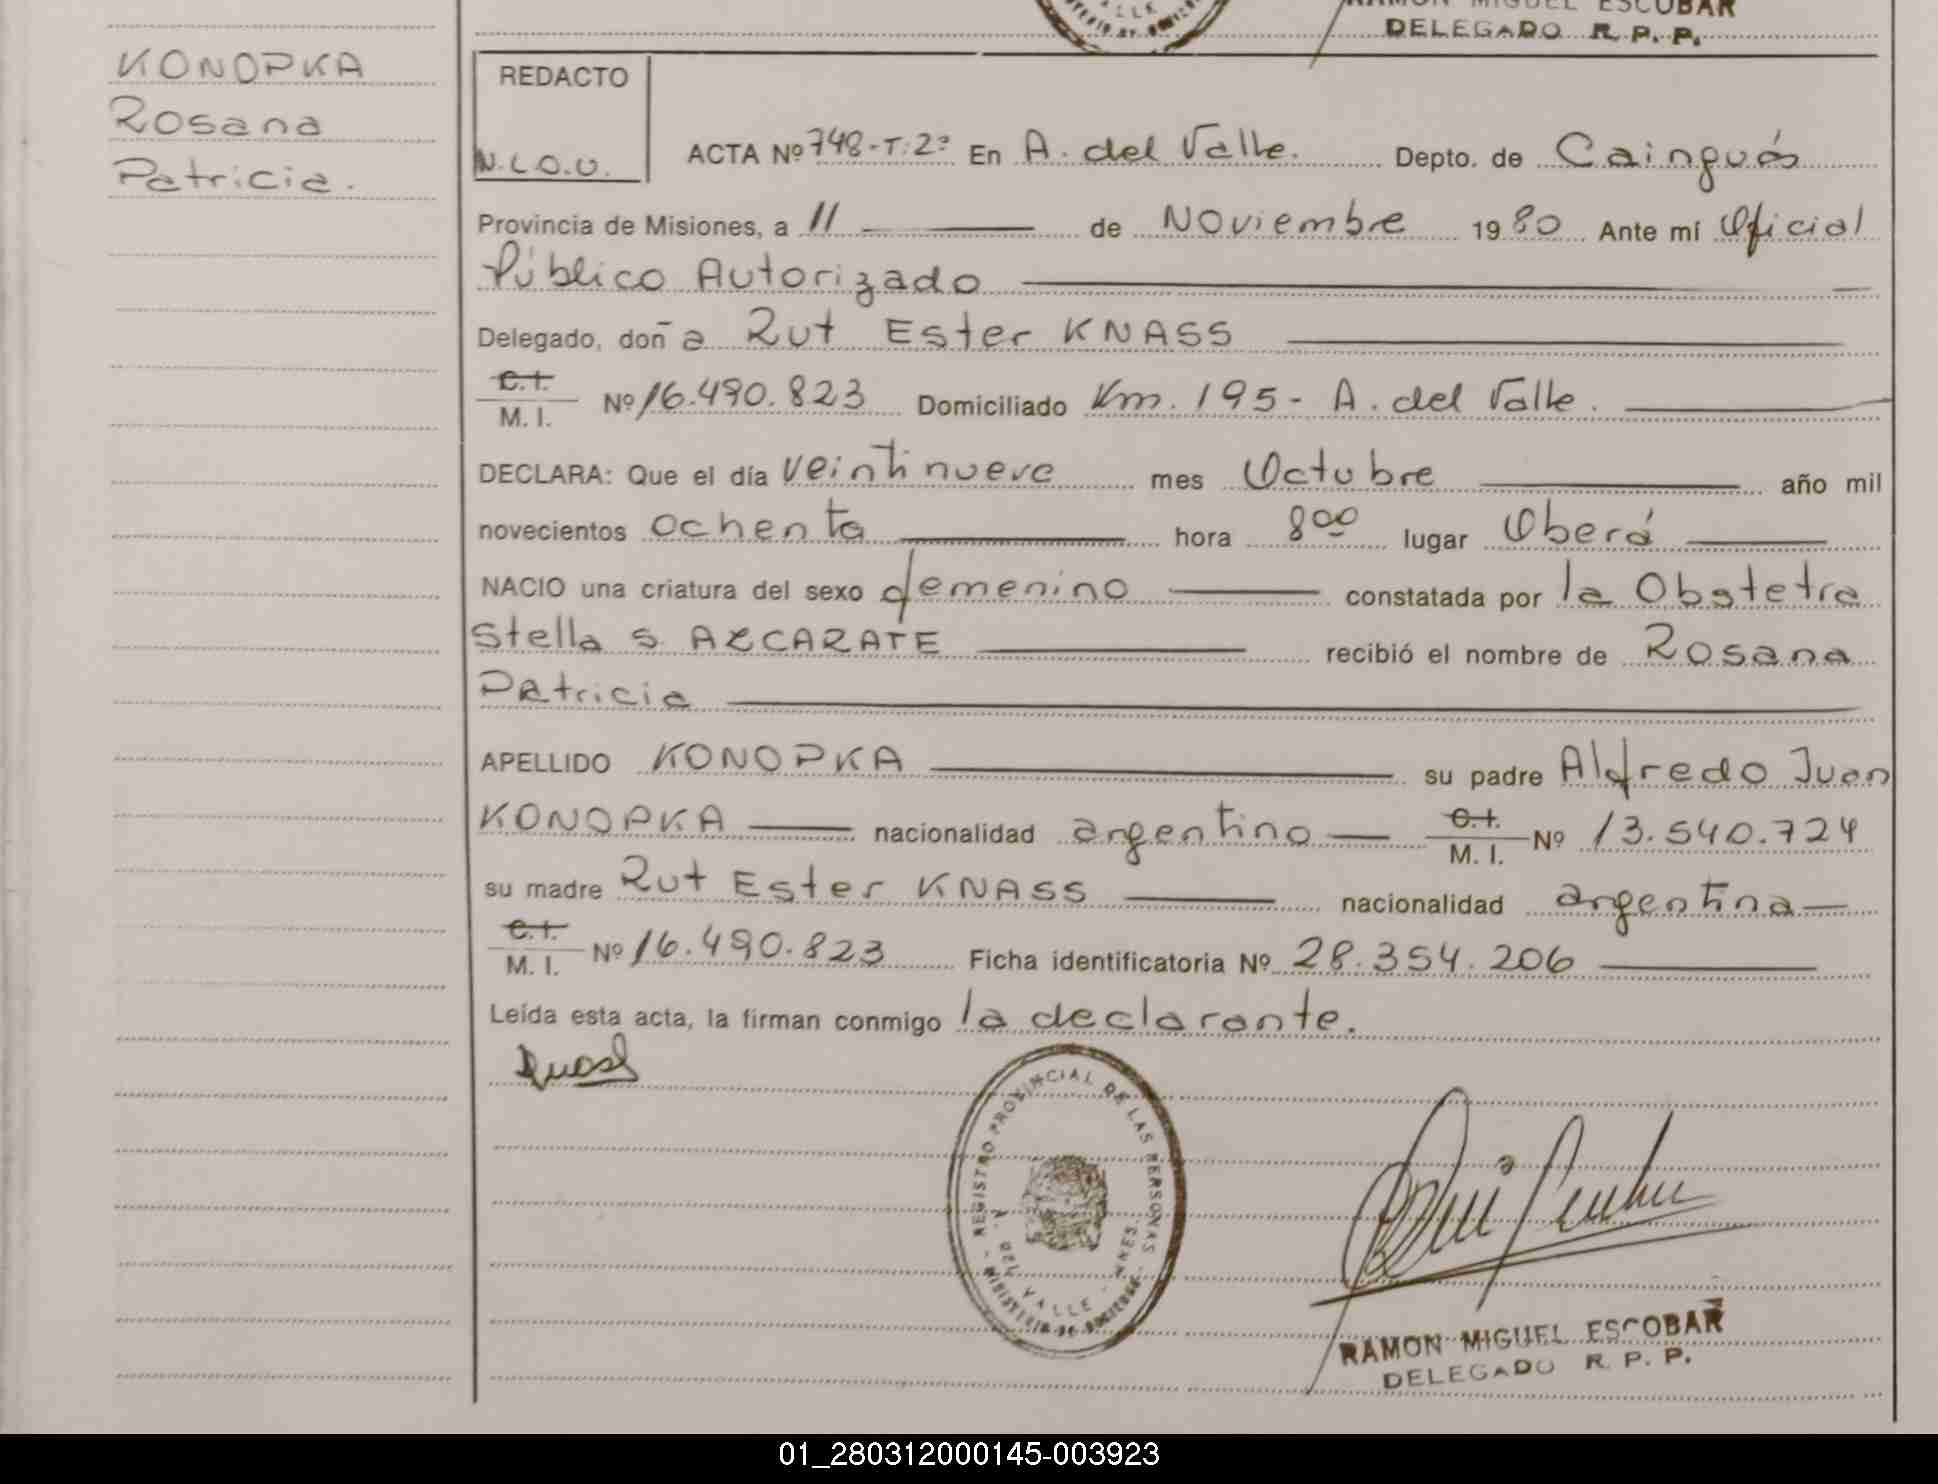 RAMON MIGUEL ESCOBAR
DELEGADO R. P. P.
KONOPKA
Rosana
Patricia.
REDACTO
N.L.O.U.
ACTA Nº 748-T:2º En A. del Valle. Depto. de Cainguás
Provincia de Misiones, a 11 de Noviembre 1980 Ante mí Oficial
Público Autorizado
Delegado, doña Rut Ester KNASS
C.I.
M. I. Nº 16.490.823 Domiciliado Km. 195- A. del Valle.
DECLARA: Que el día veintinueve mes Octubre año mil
novecientos ochenta hora 8 00 lugar Oberá
NACIO una criatura del sexo femenino constatada por la Obstetra
Stella S. AZCARATE recibió el nombre de Rosana
Patricia
APELLIDO KONOPKA su padre Alfredo Juan
KONOPKA nacionalidad argentino C.I. M. I. Nº 13.540.724
su madre Rut Ester KNASS nacionalidad argentina
C.I. M. I. Nº 16.490.823 Ficha identificatoria Nº 28.354.206
Leída esta acta, la firman conmigo la declarante.
REGISTRO PROVINCIAL DE LAS PERSONAS
A. DEL VALLE - MNES.
MINISTERIO DE GOBIERNO
RAMON MIGUEL ESCOBAR
DELEGADO R. P. P.
01_280312000145-003923